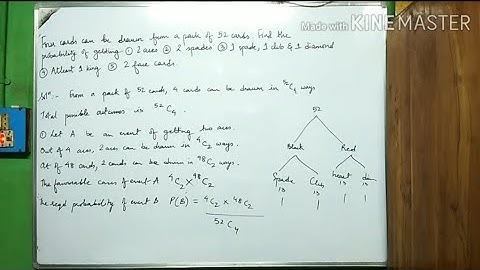 Made with KINEMASTER
Four cards can be drawn from a pack of 52 cards. Find the
probability of getting ① 2 aces ② 2 spades ③ 1 spade, 1 club & 1 diamond
④ Atleast 1 king ⑤ 2 face cards.
Solⁿ:- From a pack of 52 cards, 4 cards can be drawn in ⁵²C₄ ways
Total possible outcomes is ⁵²C₄.
① Let A be an event of getting two aces.
Out of 4 aces, 2 aces can be drawn in ⁴C₂ ways.
48 cards, 2 cards can be drawn in ⁴⁸C₂ ways.
The favourable cases of event A ⁴C₂ × ⁴⁸C₂
The reqd probability of event P(B) = ⁴C₂ × ⁴⁸C₂
⁵²C₄
52
Black Red
Spade Club heart
13 13 13 13
1 1 1 1